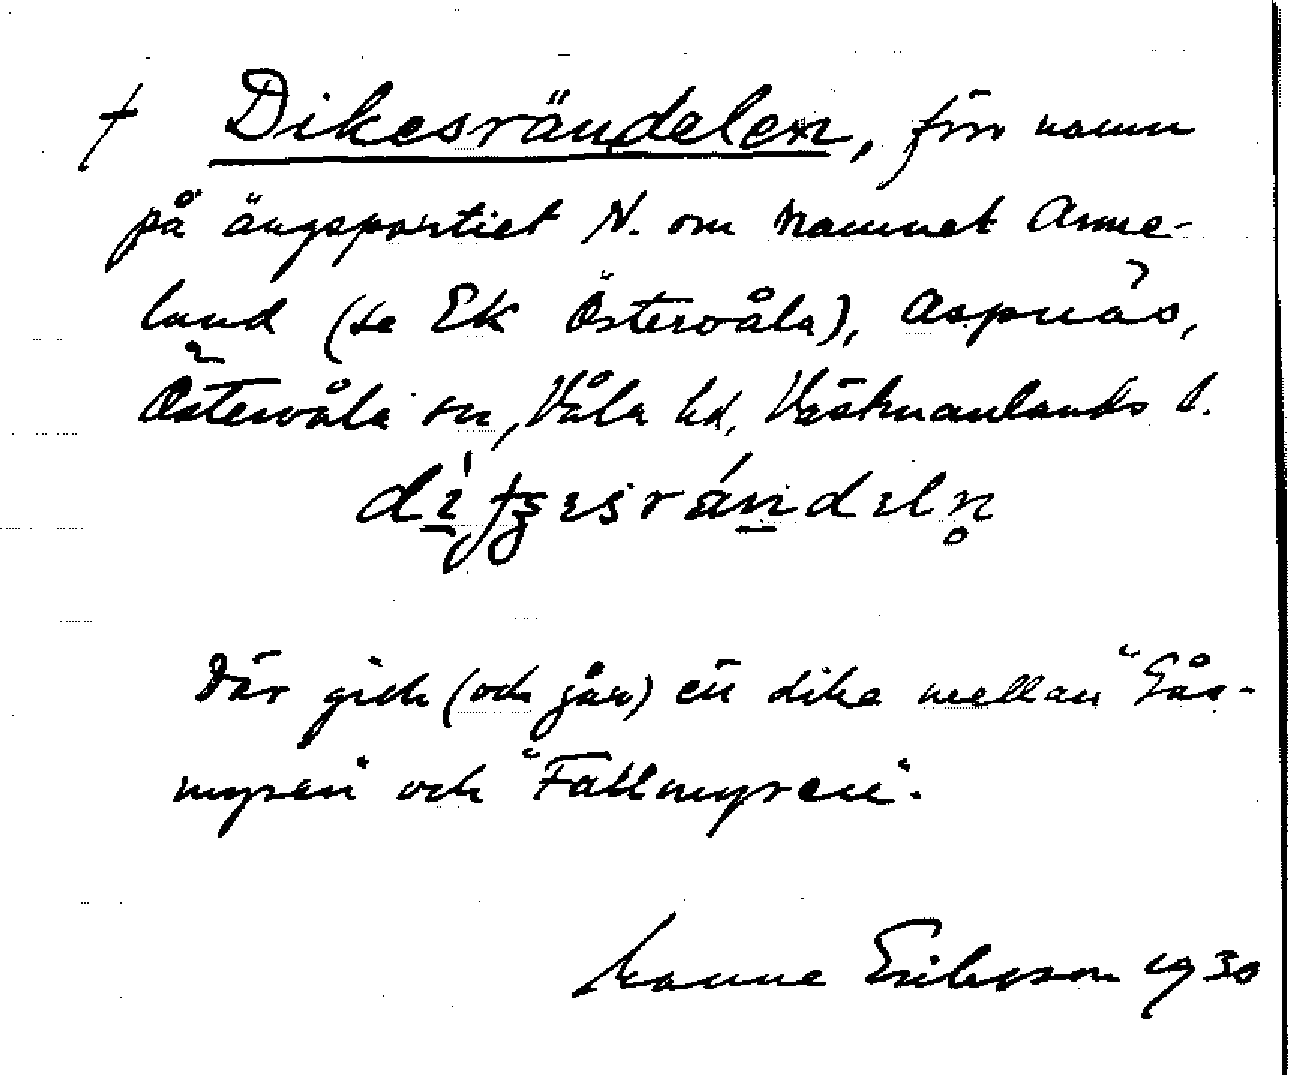 † Dikesrändelen, förr namn
på ängspartiet N. om namnet Arne-
land (se EK Östervåla), Aspnäs,
Östervåla sn, Våla hd, Västmanlands l.
Där gick (och går) ett dike mellan "Gås-
myren" och "Fallmyren".
Manne Eriksson 1930